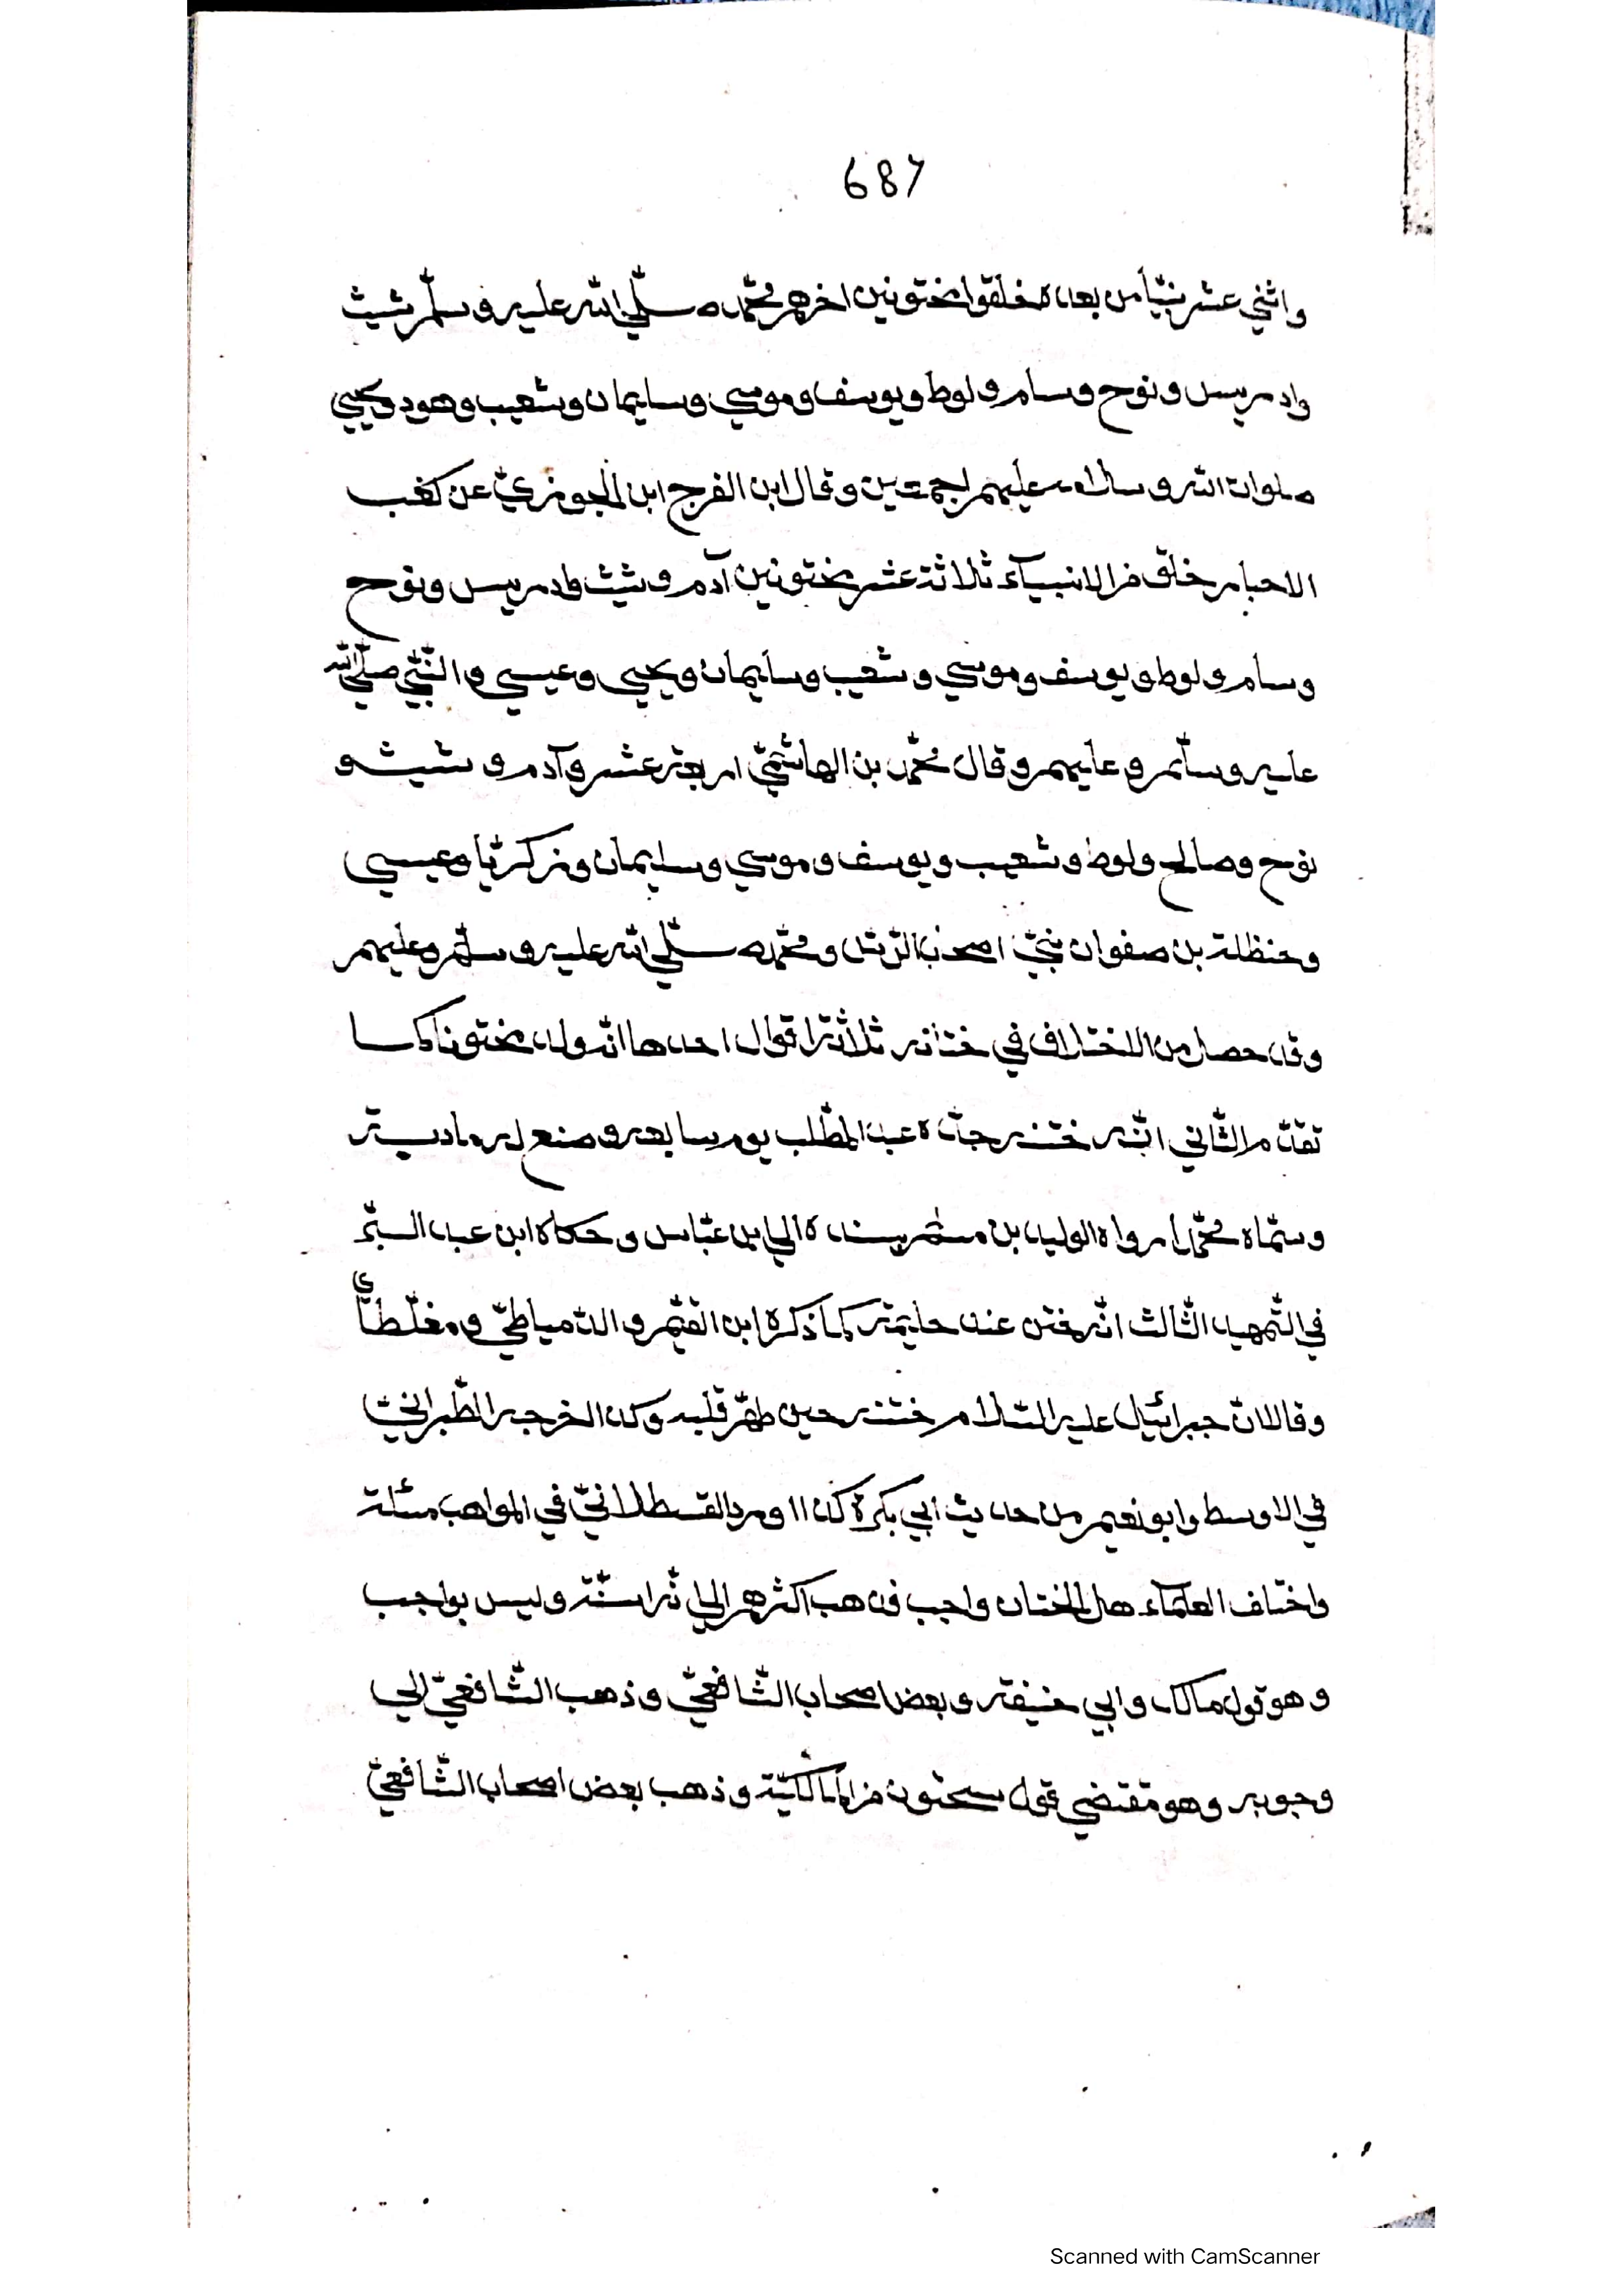 687
واثني عشر نبيّاً من بعده خلقوا مختونين اخرهم محمّد صلّي الله عليه وسلّم شيث
وادريس ونوح وسام ولوط ويوسف وموسي وسليمان وشعيب وهود ويحيي
صلوات الله وسلامه عليهم اجمعين وقال ابن الفرج ابن الجوزيّ عن كعب
الاحبار خلق من الانبيآء ثلاثة عشر مختونين آدم وشيث وادريس ونوح
وسام ولوط ويوسف وموسي وشعيب وسليمان ويحيي وعيسي والنّبيّ صلّي الله
عليه وسلّم وعليهم وقال محمّد بن الهاشميّ اربعة عشر وآدم وشيث و
نوح وصالح ولوط وشعيب ويوسف وموسي وسليمان وزكريّا وعيسي
وحنظلة بن صفوان نبيّ اصحاب الرّسّ ومحمّد صلّي الله عليه وسلّم وعليهم
وقد حصل من الاختلاف في ختانه ثلاثة اقوال احدها انّه ولد مختونا كما
تقدّم الثّاني انّه ختنه جدّه عبد المطّلب يوم سابعه وصنع له مادبة
وسمّاه محمّداً رواه الوليد بن مسلم بسنده الي ابن عبّاس وحكاه ابن عبد البرّ
في التّمهيد الثّالث انّه ختن عند حليمة كما ذكره ابن القيّم والدّمياطيّ ومغلّطاي
وقالا انّ جبرائيل عليه السّلام ختنه حين طهّر قلبه وكذا اخرجه الطّبرانيّ
في الاوسط وابو نعيم من حديث ابي بكرة كذا اورد القسطلانيّ في المواهب مسئلة
واختلف العلمآء هل الختان واجب فذهب اكثرهم الي انّه سنّة وليس بواجب
وهو قول مالك وابي حنيفة وبعض اصحاب الشّافعيّ وذهب الشّافعيّ الي
وجوبه وهو مقتضي قول سحنون من المالكيّة وذهب بعض اصحاب الشّافعيّ
Scanned with CamScanner